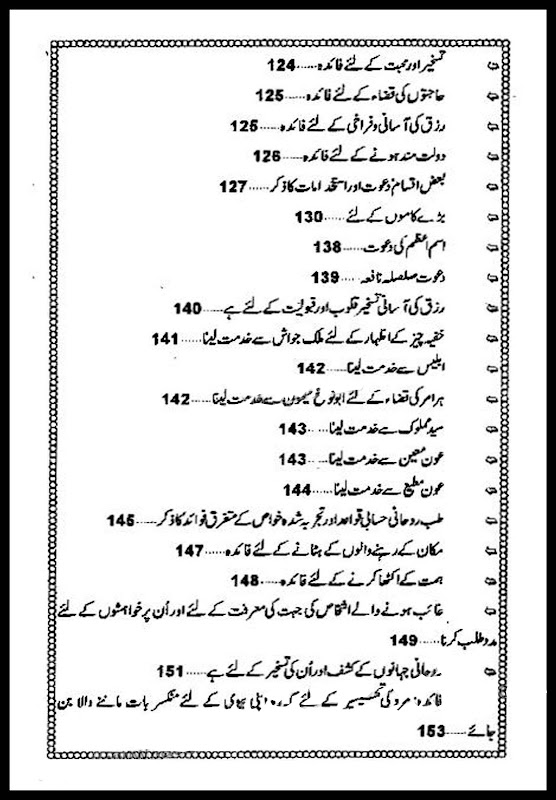 تسخیر اور محبت کے لئے فائدہ.....124
حاجتوں کی قضاء کے لئے فائدہ......125
رزق کی آسانی و فراخی کے لئے فائدہ.....125
دولت مند ہونے کے لئے فائدہ......126
بعض اقسام دعوت اور استخدامات کا ذکر......127
بڑے کاموں کے لئے......130
اسم اعظم کی دعوت......138
دعوت صلصلہ نافعہ.....139
رزق کی آسانی تسخیر قلوب اور قبولیت کے لئے ہے......140
خفیہ چیز کے اظہار کے لئے ملک جواش سے خدمت لینا......141
ابلیس سے خدمت لینا......142
ہر امر کی قضاء کے لئے ابونوخ میمون سے خدمت لینا......142
سید مملوک سے خدمت لینا......143
عون معین سے خدمت لینا......143
عون مطیع سے خدمت لینا......144
طب روحانی حسابی قواعد اور تجربہ شدہ خواص کے متفرق فوائد کا ذکر.....145
مکان کے رہنے والوں کے ہٹانے کے لئے فائدہ......147
ہمت کے اکٹھا کرنے کے لئے فائدہ......148
غائب ہونے والے اشخاص کی جہت کی معرفت کے لئے اور اُن پر خواہشوں کے لئے
مدد طلب کرنا......149
روحانی جہانوں کے کشف اور اُن کی تسخیر کے لئے ہے.....151
فائدہ: مرد کی کے لئے کہ وہ اپنی بیوی کے لئے منکسر بات ماننے والا بن
جائے.....153